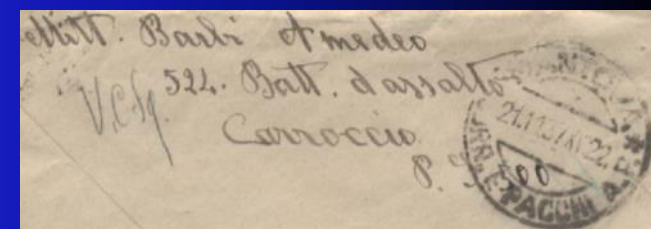 Mitt. Barbi Amedeo
524. Batt. d'assalto
Carroccio
P. S. 500
21.11.37.XV.22
PACCHI A.